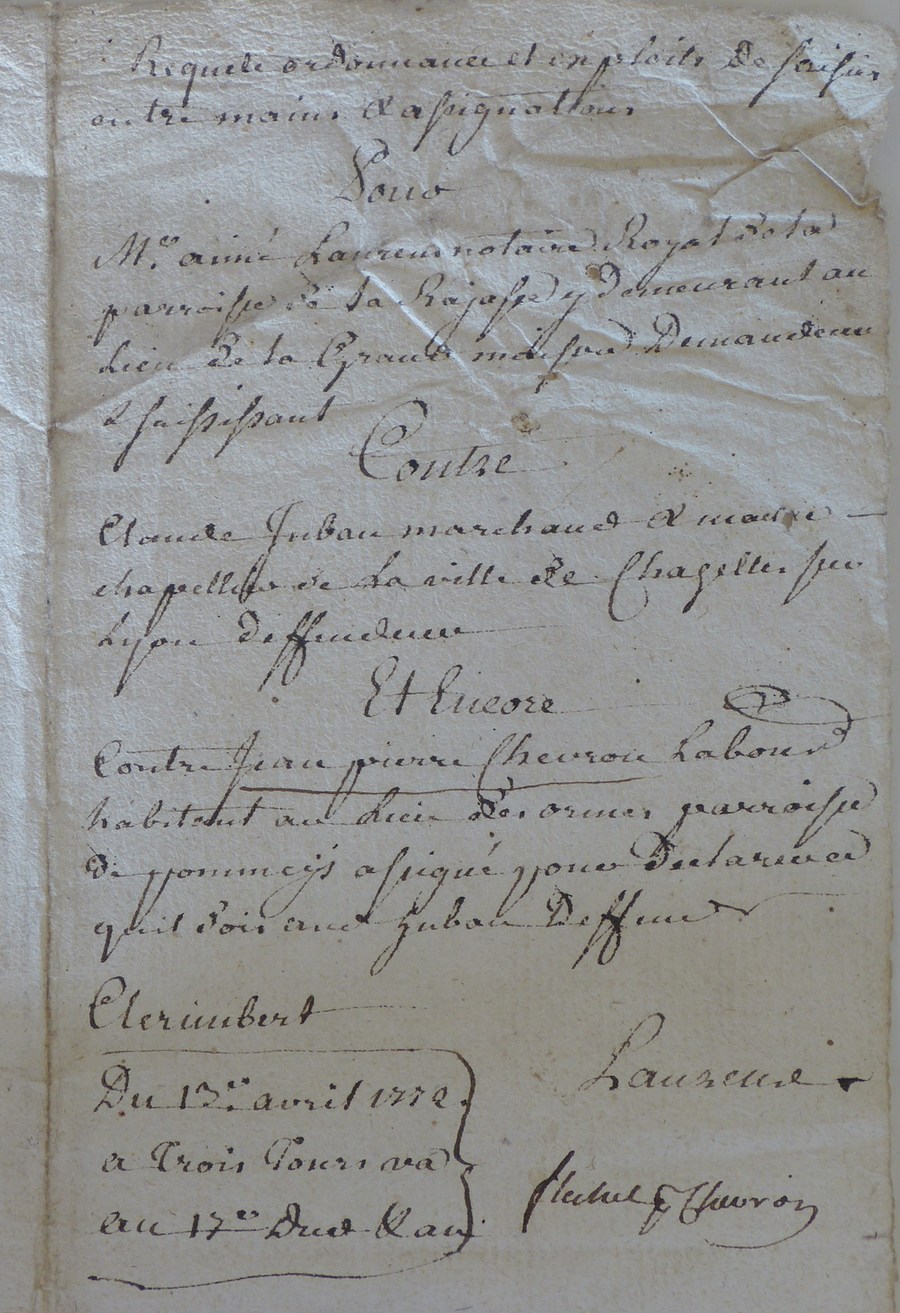 Requete ordonnance et exploits de saisies
entre mains & assignations
Pour
Mre. aimé Laurens notaire Royal de la
parroisse de la Rajasse y demeurant au
Lieu de la Grand maison Demandeur
& saisissant
Contre
Claude Juban marchand & maitre
chapellier de la ville de Chazelles sur
Lyon deffendeur
Et Encore
Contre Jean pierre Chevron Labour
habitant au Lieu des ormes parroisse
de pommeys assigné pour declarer ce
quil doit aud Juban Deffend r
Clerimbert
Du 13e. avril 1772
a Trois Jours va
au 17e Dud &
Laurens
flechet p Chevron